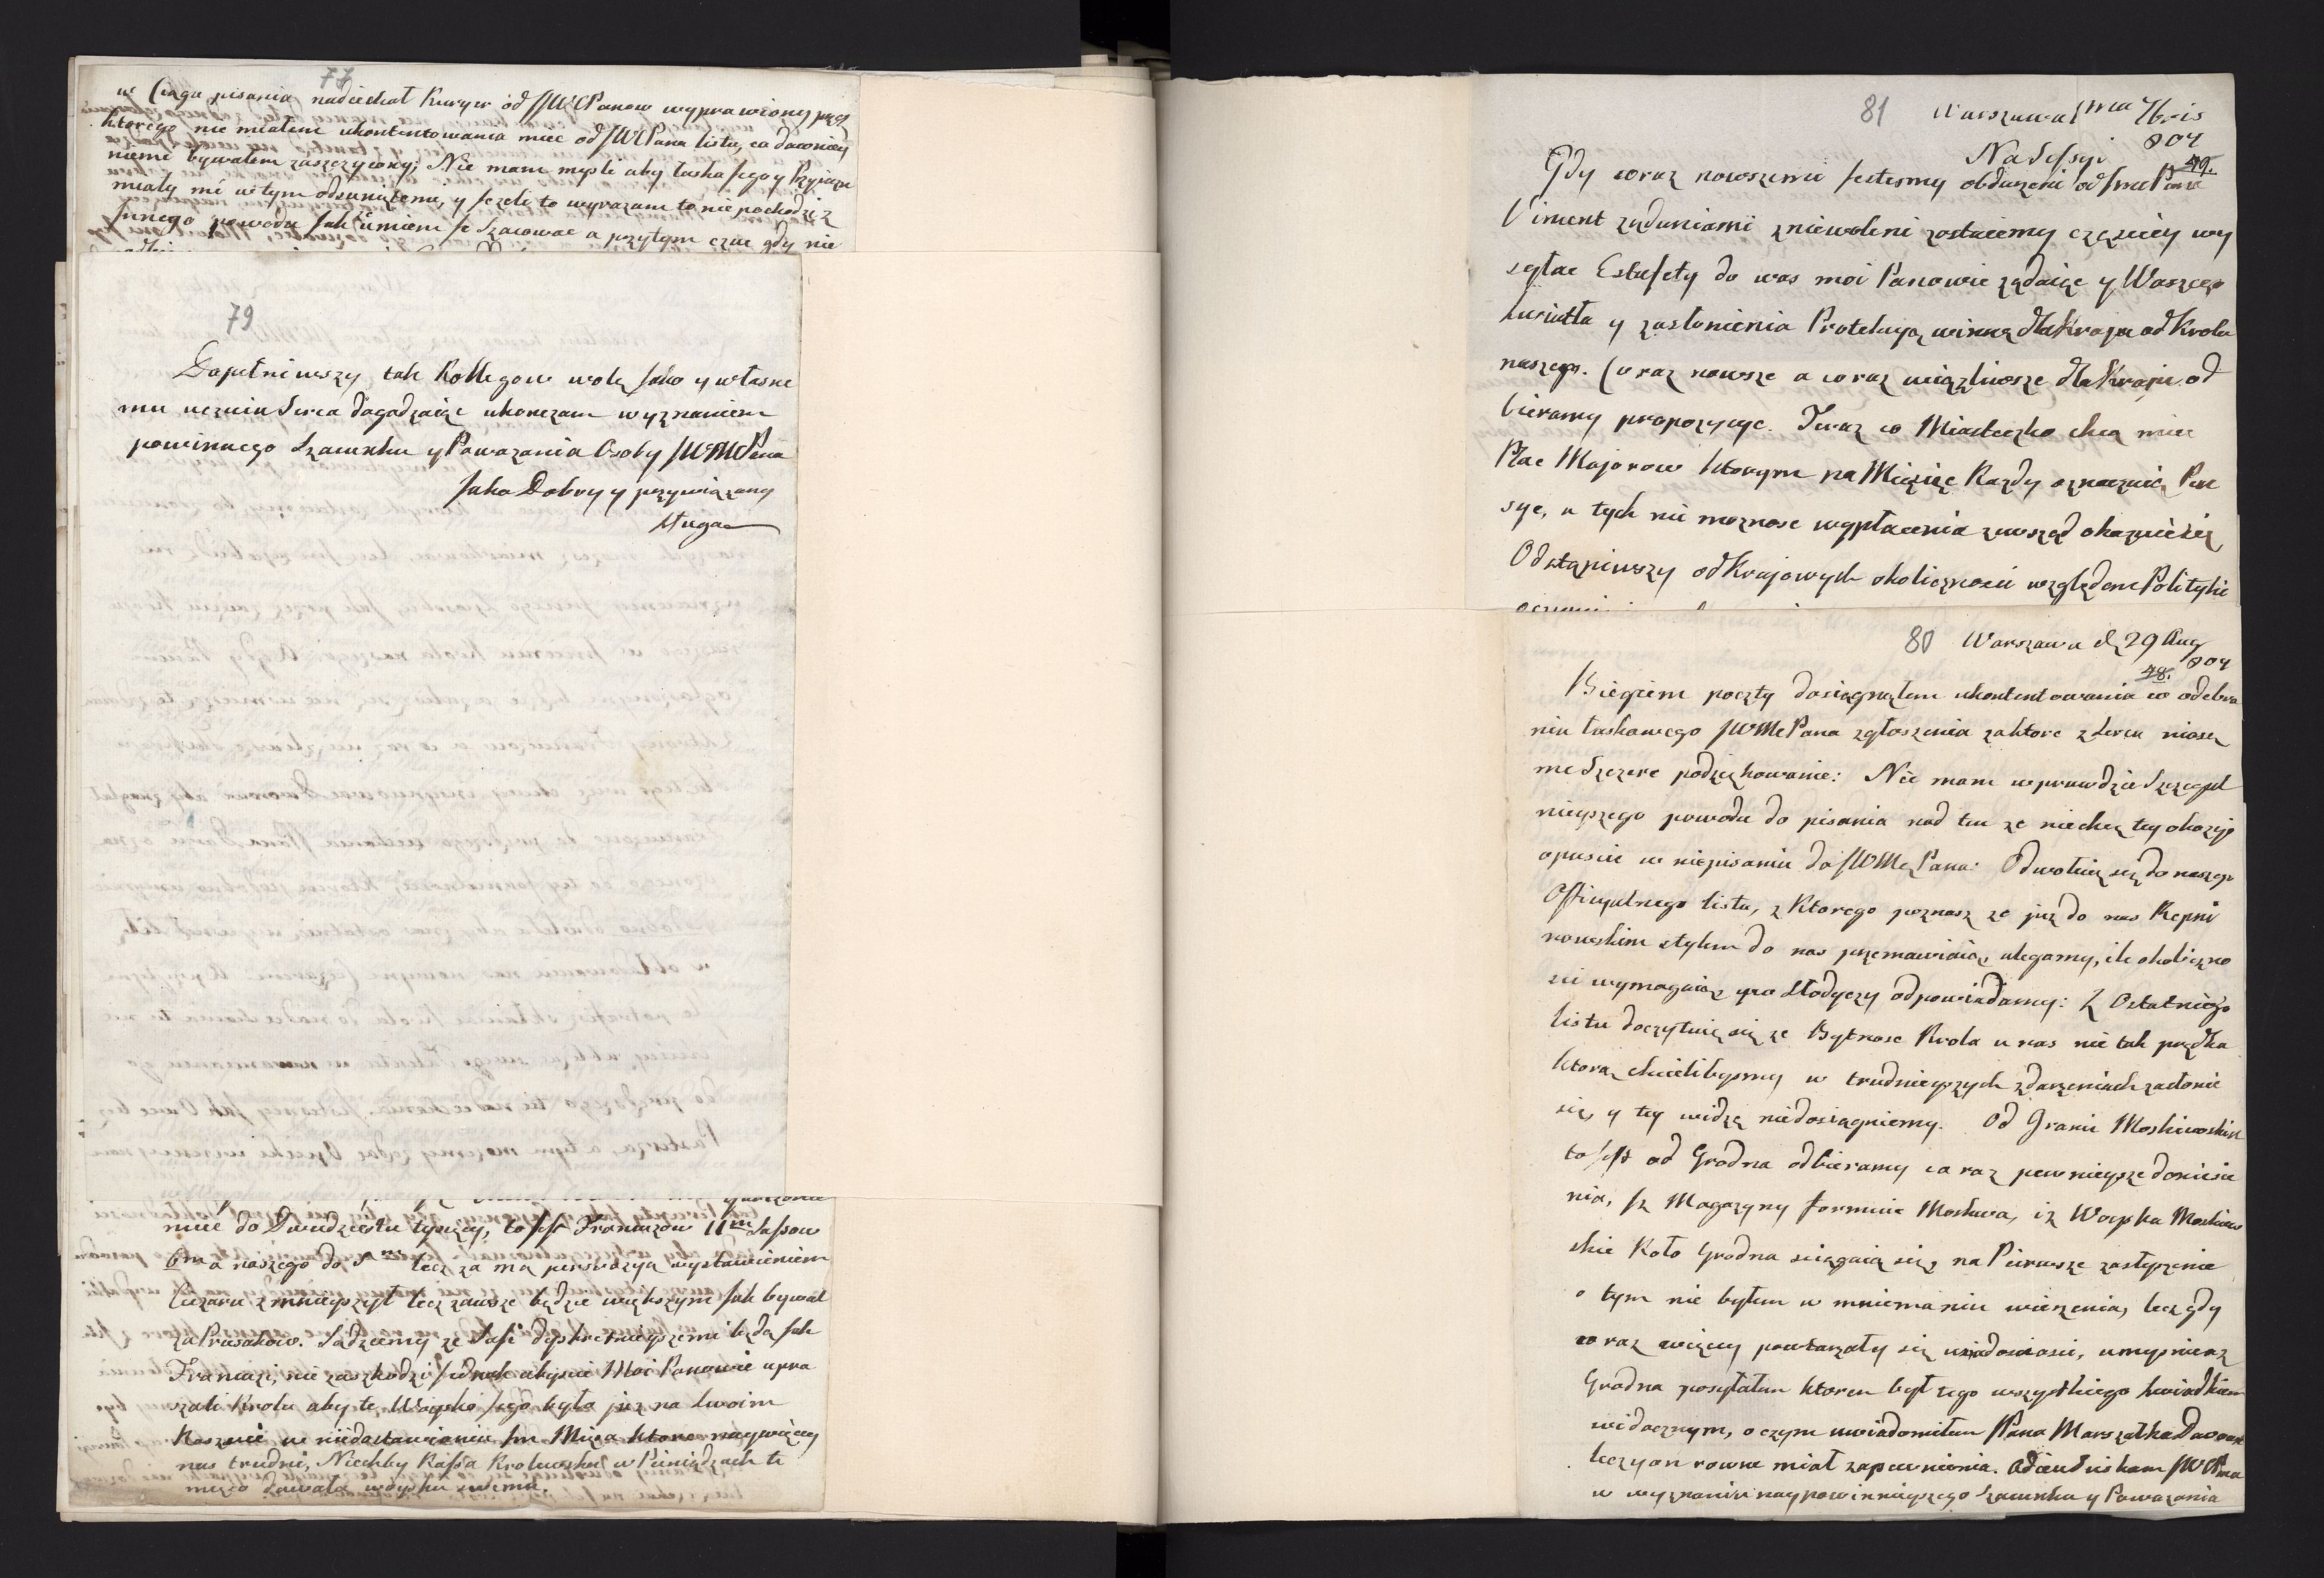 77
w Ciągu pisania nadiechał Kuryer od JJWWPanow wyprawiony przez
ktorego nie miałem ukontentowania miec od JWPana listu, co dawniey
niemi bywałem zaszczycony; Nie mam mysli aby łaska Jego y Przyiazn
miały mi w tym odsuniętemi, y Jezeli to wyrazam to nie pochodzi z
Innego powodu Jak umiem Je Szacowac a przytym czuc gdy nie
79
Dopełniwszy tak Kollegow wolę Jako y własne
mu uczuciu Serca dogadzaiąc ukonczam wyznaniem
powinnego Szacunku y Powazania Osoby JWMPana
Jako Dobry y przywiązany
sługa
miec do Dwudziestu tysięcy, to jest Francuzow 11m Sassow
6m a naszego do 5m lecz za mą perswazyą wystawieniem
Ciężaru zmnieyszył lecz zawsze będzie większym Jak bywał
za Prusakow. Sądziemy ze Sasi dyskretnieyszemi będą Jak
Francuzi, nie zaszkodzi Jednak abyscie Moi Panowie upra
szali Krola aby te Woysko Jego było juz na Swoim
Koszcie w niedostawieniu Im Mięsa ktore naywięcey
nas trudni, Niechby Kassa Krolewska w Pieniądzach te
mięso dawała woysku swemu.
81 Warszawa 1ma 7bris
807
Na Sessyi 49.
Gdy coraz nowszemi Jestesmy obdarzeni od Jmc Pana
Viment ządaniami zniewoleni zostaiemy częsciey wy
syłac Estafety do was moi Panowie ządaiąc y Waszego
Swiatła y zasłonienia Protekcyą winną dla Kraju od Krola
naszego. Coraz nowsze a coraz uciązliwsze dla Kraju od
bieramy propozycye. Teraz co Miasteczko chcą miec
Plac Majorow ktorym na Miesiąc Kazdy oznaczaią Pen
sye, a tych nie moznosc wypłacenia zewsząd okazuie się,
Odstąpiwszy od Krajowych okolicznosci względem Polityki
80 Warszawa d 29 Aug
807
48.
Biegiem poczty dosiągnąłem ukontentowania w odebra
niu łaskawego JWMcPana zgłoszenia za ktore z Serca niosę
me Szczere podziękowanie: Nie mam wprawdzie Szczegul
nieyszego powodu do pisania nad ten ze niechcę tey okazyi
opuscic w niepisaniu do JWMcPana: Odwołuię się do naszego
Officyalnego listu, z Ktorego poznasz ze juz do nas Repni
nowskim stylem do nas przemawiaią, ulegamy, ile okoliczno
sci wymagaią y po Słodyczy odpowiadamy: Z Ostatniego
listu doczytuię się ze Bytnosc Krola u nas nie tak prędka
ktorą chcielibysmy w trudnieyszych zdarzeniach zasłonic
się, y tey widzę niedosiągniemy. Od Granic Moskiewskich
to Jest od Grodna odbieramy coraz pewnieysze doniesie
nia, Iz Magazyny formuie Moskwa, iz Woyska Moskiew
skie Koło Grodna sciągaią się, na Pierwsze zasłyszenie
o tym nie byłem w mniemaniu wierzenia, lecz gdy
coraz więcey powtarzały się wiadomosci, umyslnie z
Grodna posyłałem ktoren był tego wszystkiego Swiadkiem
widocznym, o czym uwiadomiłem Pana Marszałka Davoust
lecz y on rowne miał zapewnienia. Odcałuiąc JWPana
w wyznaniu naypowinnieyszego Szacunku y Powazania